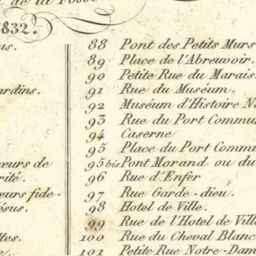 de la Fosse
1832.
us.
ardins.
œurs de
rité.
eurs fide-
ésus.
lles.
88 Pont des Petits Murs
89 Place de l'Abreuvoir.
90 Petite Rue du Marais.
91 Rue du Muséum.
92 Muséum d'Histoire N
93 Rue du Port Commun
94 Caserne
95 Place du Port Commu
95 bis Pont Morand ou du
96 Rue d'Enfer
97 Rue Garde-dieu.
98 Hotel de Ville.
99 Rue de l'Hotel de Vill
100 Rue du Cheval Blanc
101 Petite Rue Notre-Dam